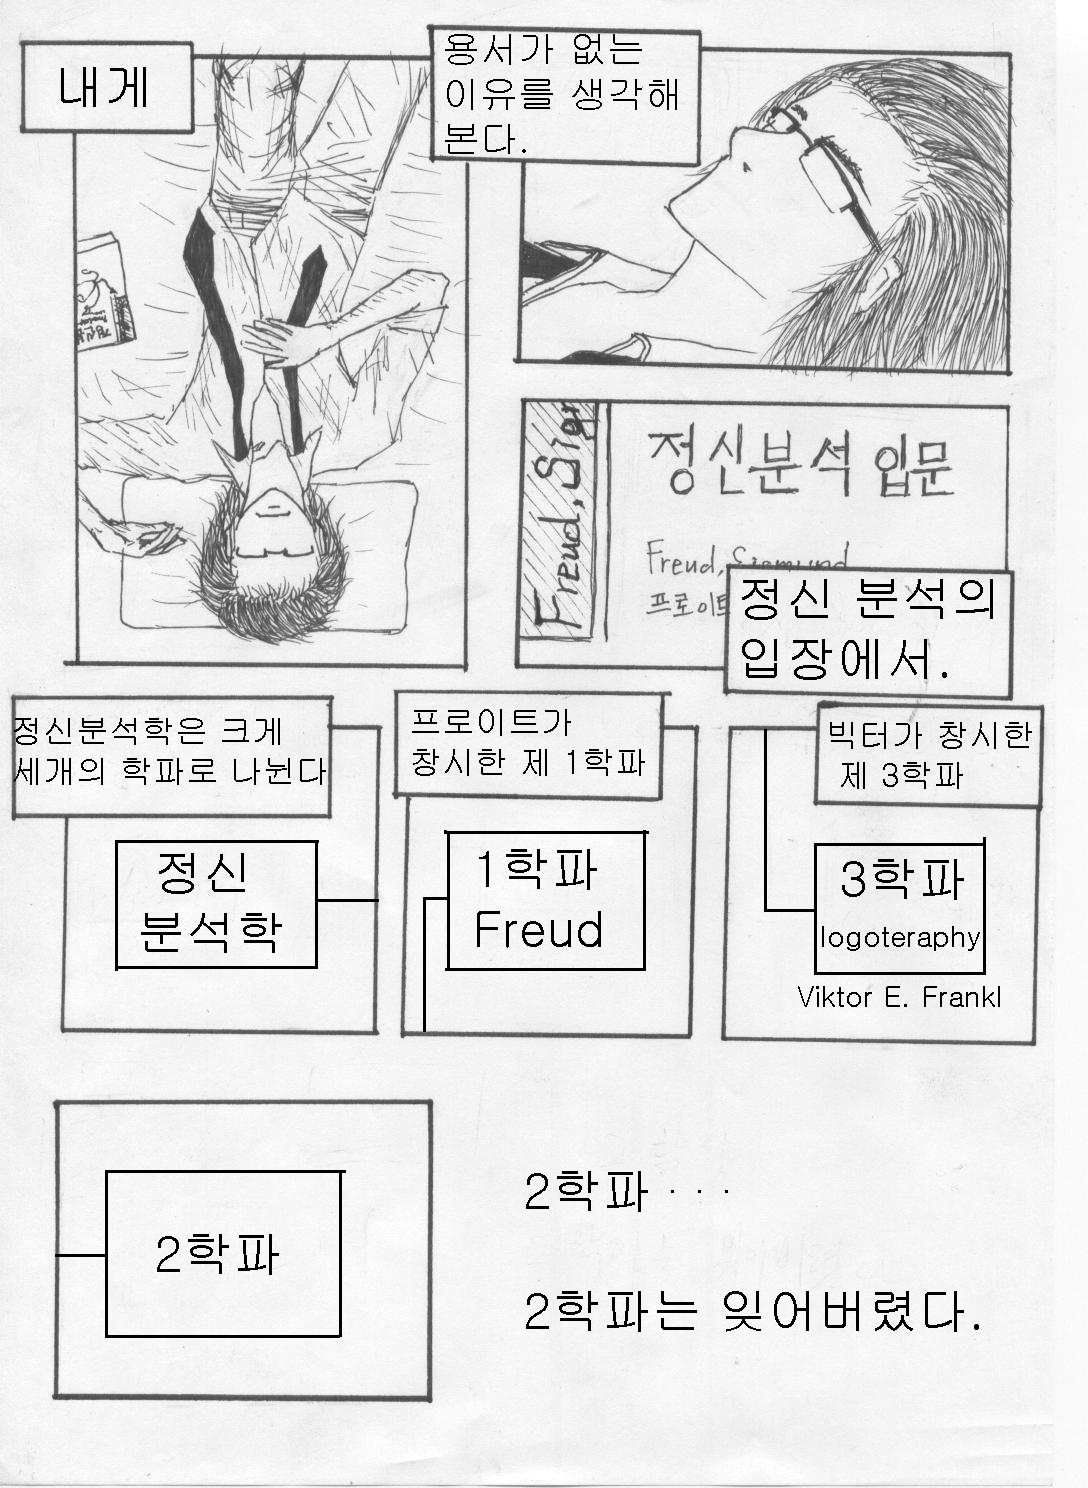 내게
용서가 없는
이유를 생각해
본다.
Freud, Sig
정신분석 입문
Freud, Sigmund
프로이트
정신 분석의
입장에서.
정신분석학은 크게
세개의 학파로 나뉜다
정신
분석학
프로이트가
창시한 제 1학파
1학파
Freud
빅터가 창시한
제 3학파
3학파
logoteraphy
Viktor E. Frankl
2학파
2학파 . . .
2학파는 잊어버렸다.